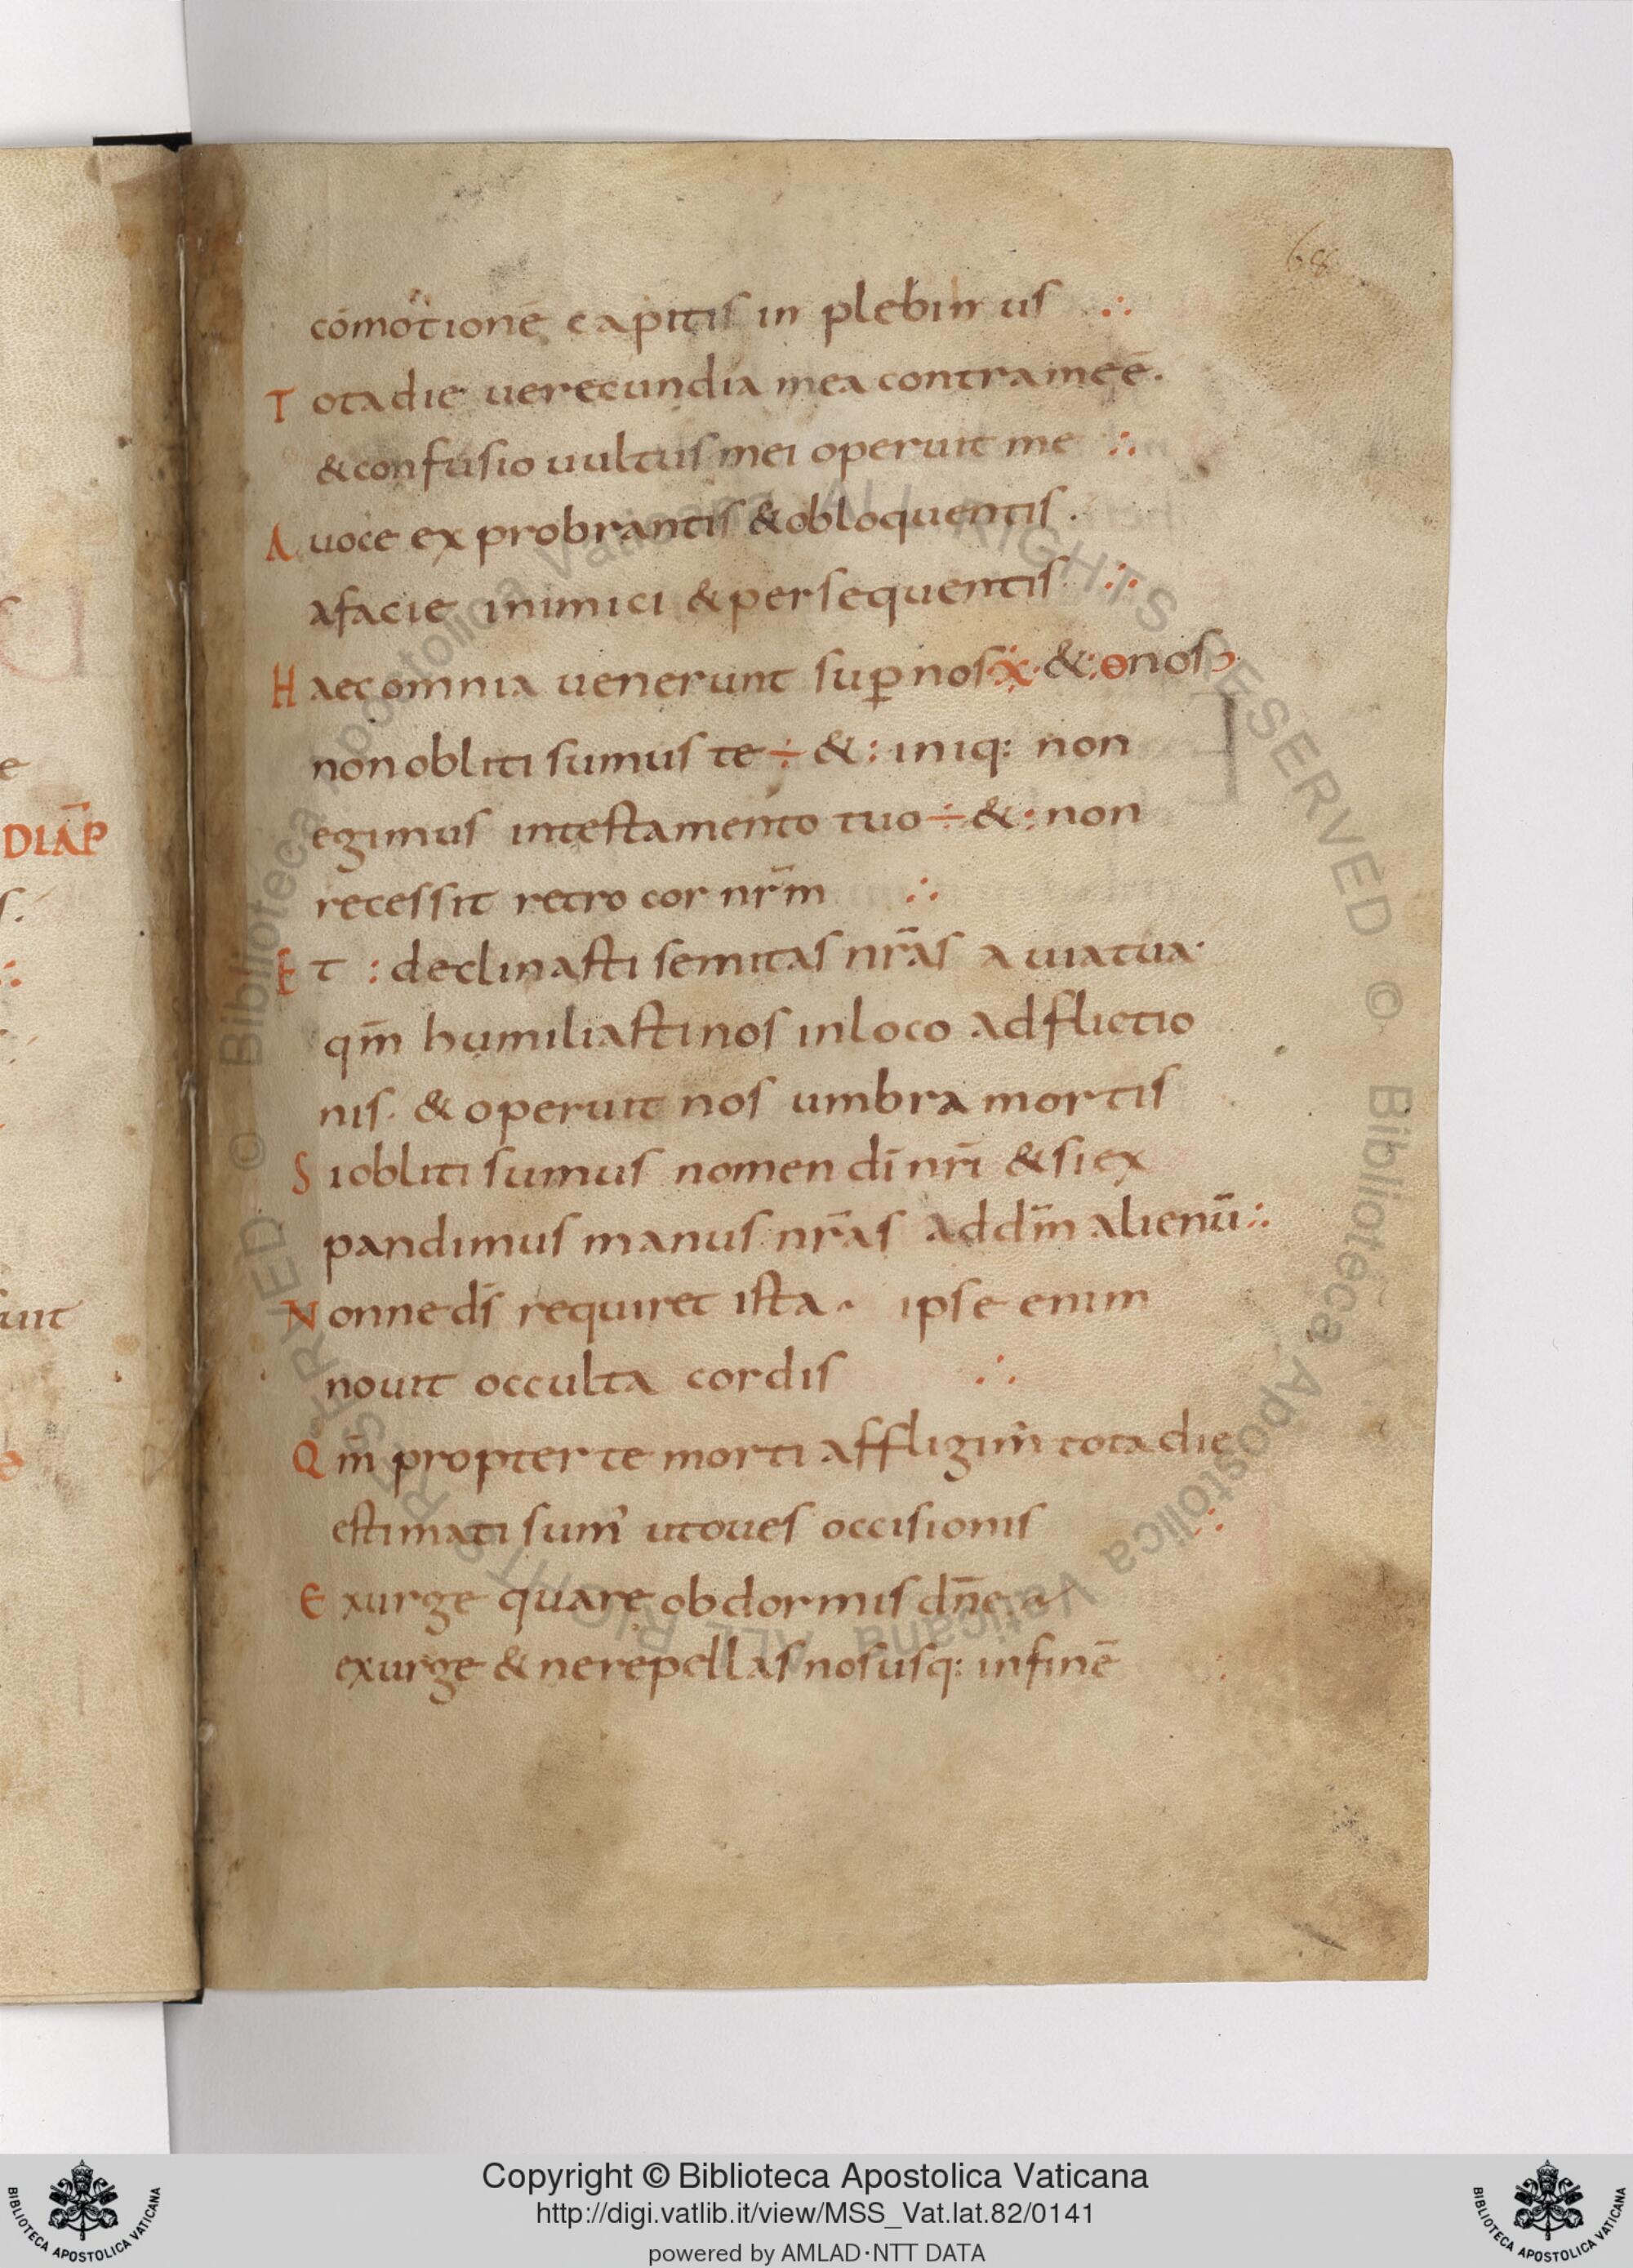 68
cōmotionē capitis in plebin us ∴
Tota die uerecundia mea contra me ē.
& confusio uultus mei operuit me ∴
A uoce exprobrantis & obloquentis.
a facie inimici & persequentis ∴
Haec omnia uenerunt sup nos & nos
non obliti sumus te ÷ &: iniq: non
egimus in testamento tuo ÷ &: non
recessit retro cor nr̄m ∴
Et : declinasti semitas nr̄as a uia tua·
qm̄ humiliasti nos in loco adflictio
nis. & operuit nos umbra mortis
Si obliti sumus nomen dī nr̄i & si ex
pandimus manus nr̄as ad dm̄ alienū ∴
Nonne ds̄ requiret ista ipse enim
nouit occulta cordis ∴
Qm̄ propter te morti affligim' tota die
estimati sum' ut oues occisionis ∴
Exurge quare obdormis dn̄e
exurge & ne repellas nos usq: in finē :
DIAP̄
uit
Copyright © Biblioteca Apostolica Vaticana
http://digi.vatlib.it/view/MSS_Vat.lat.82/0141
powered by AMLAD·NTT DATA
BIBLIOTECA APOSTOLICA VATICANA
BIBLIOTECA APOSTOLICA VATICANA
© Biblioteca Apostolica Vaticana ALL RIGHTS RESERVED © Biblioteca Apostolica Vaticana ALL RIGHTS RESERVED